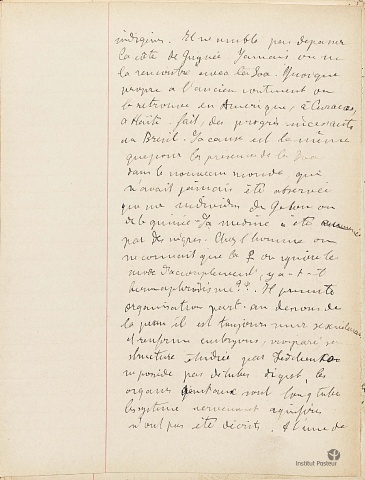 indigènes. Il ne semble pas dépasser
la côte de Guinée. Jamais on ne
la rencontre avec la Loa. Quoique
propre à l'ancien continent on
la retrouve en Amérique, à Curaçao,
à Haïti. fait des progrès incessants
au Brésil. La cause est la même
que pour la présence de la
dans le nouveau monde, qui
n'avait jamais été observée
que sur individus du Gabon ou
de la Guinée. La médine a été
par des nègres. Chez l'homme on
reconnait que la ♀ on ignore le
mode d'accouplement, y a-t-il
hermaphrodisme ?? Il présente
organisation part. au dessous de
la peau il est toujours mur sexuellement
et renferme embryons,
structure étudiée par
ne possède pas de tube digest, les
organes génitaux sont long tube
le système nerveux et aquifère
n'ont pas été décrits.
Institut Pasteur